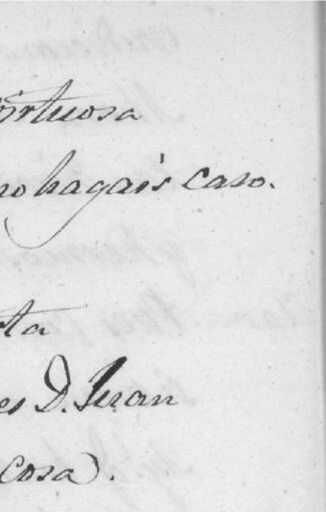 virtuosa
no hagais caso.
ta
es D. Juan
cosa.